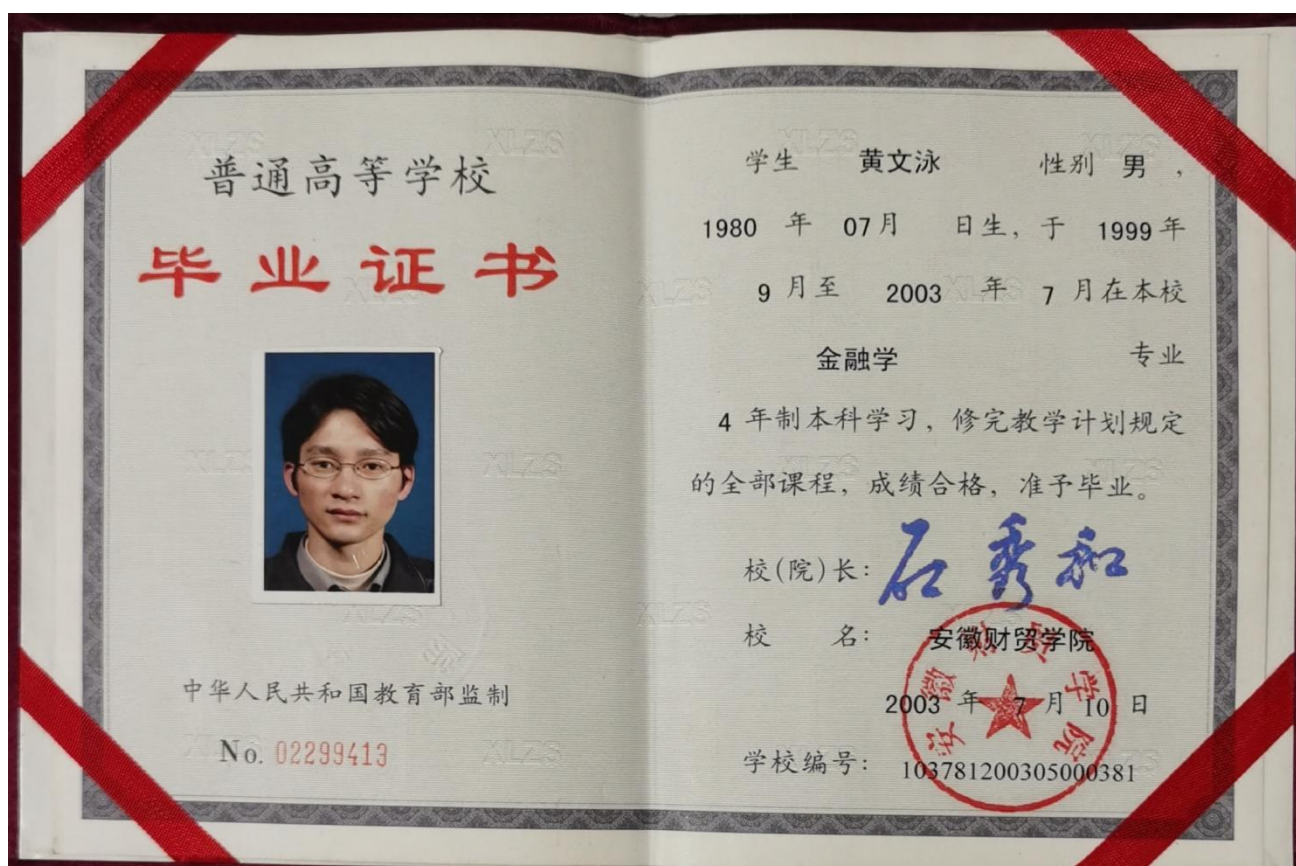 普通高等学校
毕业证书
中华人民共和国教育部监制
No. 02299413
学生 黄文泳 性别 男，
1980 年 07月 日生，于 1999年
9 月至 2003 年 7 月在本校
金融学 专业
4 年制本科学习，修完教学计划规定
的全部课程，成绩合格，准予毕业。
校(院)长： 石秀和
校 名： 安徽财贸学院
2003 年 7 月 10 日
学校编号： 103781200305000381
安徽财贸学院
XLZS